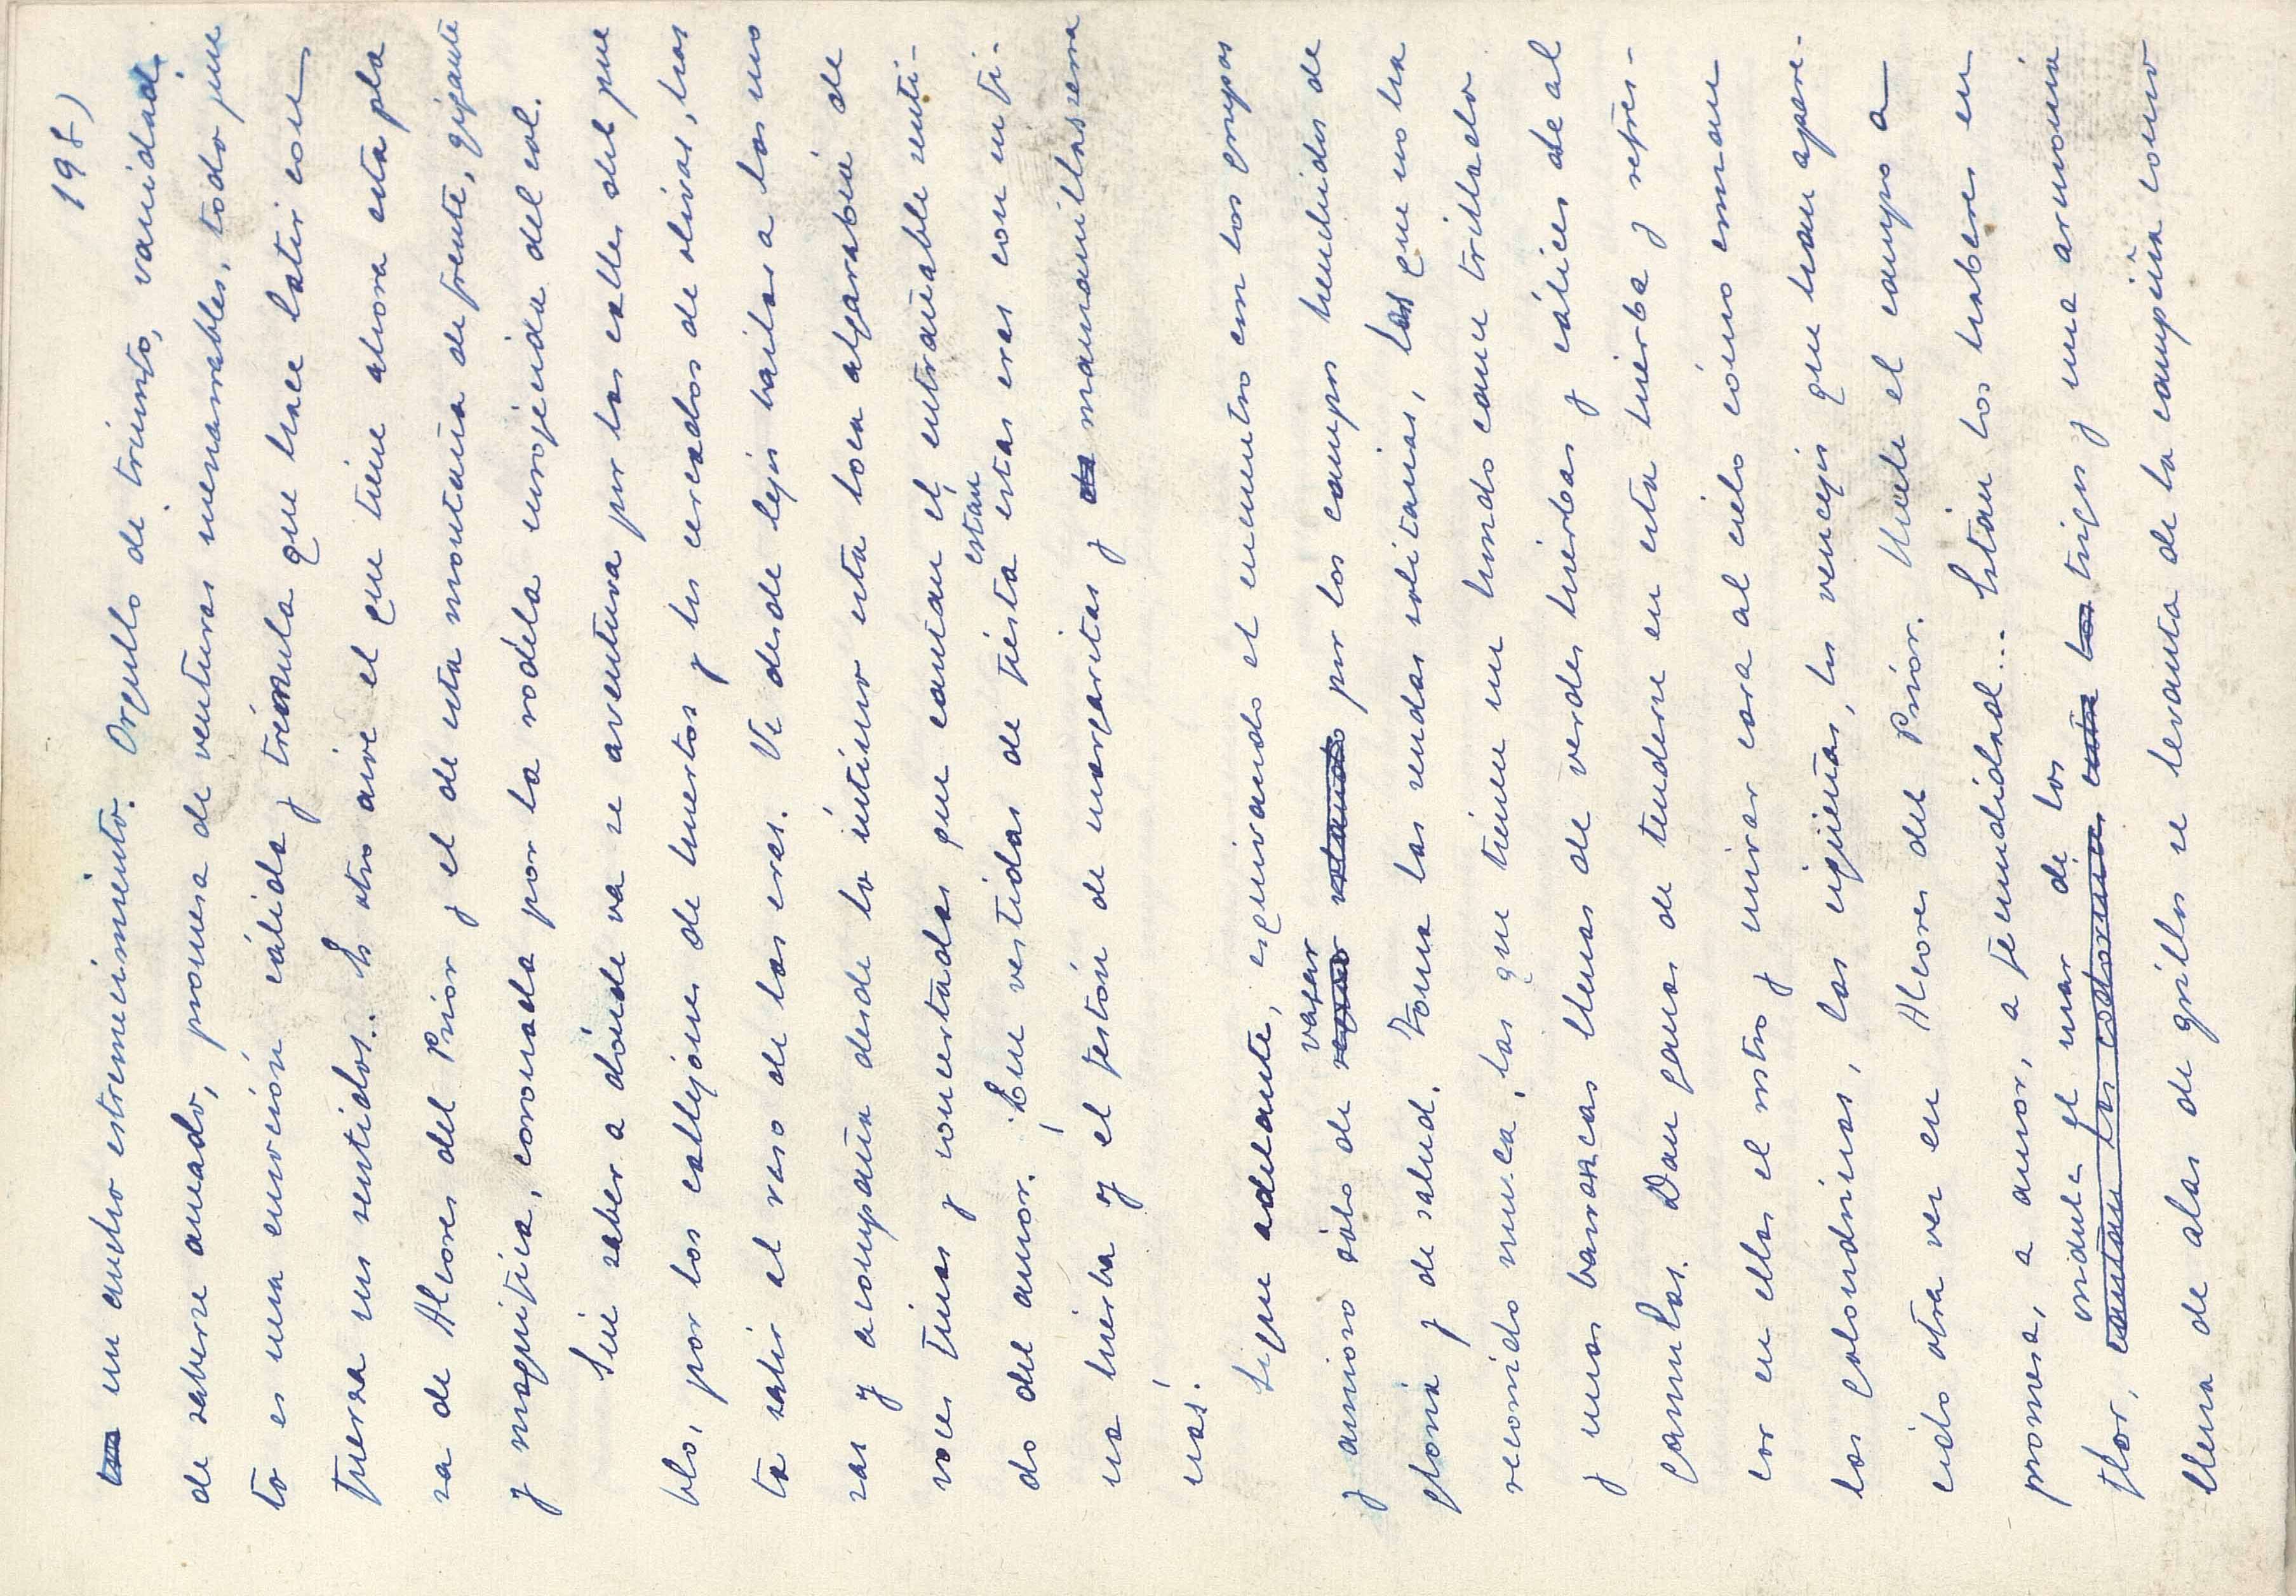 198)
un ancho estremecimiento. Orgullo de triunfo, vanidad
de saberse amado, promesa de venturas inenarrables, todo jun
to es una emoción cálida y trémula que hace latir con
fuerza sus sentidos.. Es otro aire el que tiene ahora esta pla
za de Alcores del Prior y el de esta montaña de frente, gigante
y magnífica, coronada por la rodela enrojecida del sol.
Sin saber a dónde va se aventura por las calles del pue
blo, por los callejones de huertos y los cercados de olivas, has
ta salir al raso de las eras. Ve desde lejos bailar a las mo
zas y acompaña desde lo íntimo esta loca algarabía de
voces finas y concertadas que cantan el entrañable senti-
do del amor. ¡Qué vestidas de fiesta están estas eras con su fi-
na hierba y el festón de margaritas y manzanillas serra
nas!
Sigue adelante, esquivando el encuentro con los grupos
y ansioso sólo de vagar por los campos henchidos de
gloria y de salud. Toma las sendas solitarias, las que no ha
recorrido nunca, las que tienen un hondo cauce trillado
y unas barrancas llenas de verdes hierbas y cálices de al
gamulas. Dan ganas de tenderse en esta hierba y refres-
car en ellas el rostro y mirar cara al cielo cómo cruzan
las golondrinas, las cigüeñas, los vencejos que han apare-
cido otra vez en Alcores del Prior. Huele el campo a
promesa, a amor, a fecundidad... Están los habares en
flor, ondula el mar de los trigos y una armonía
llena de alas de grillos se levanta de la campiña como